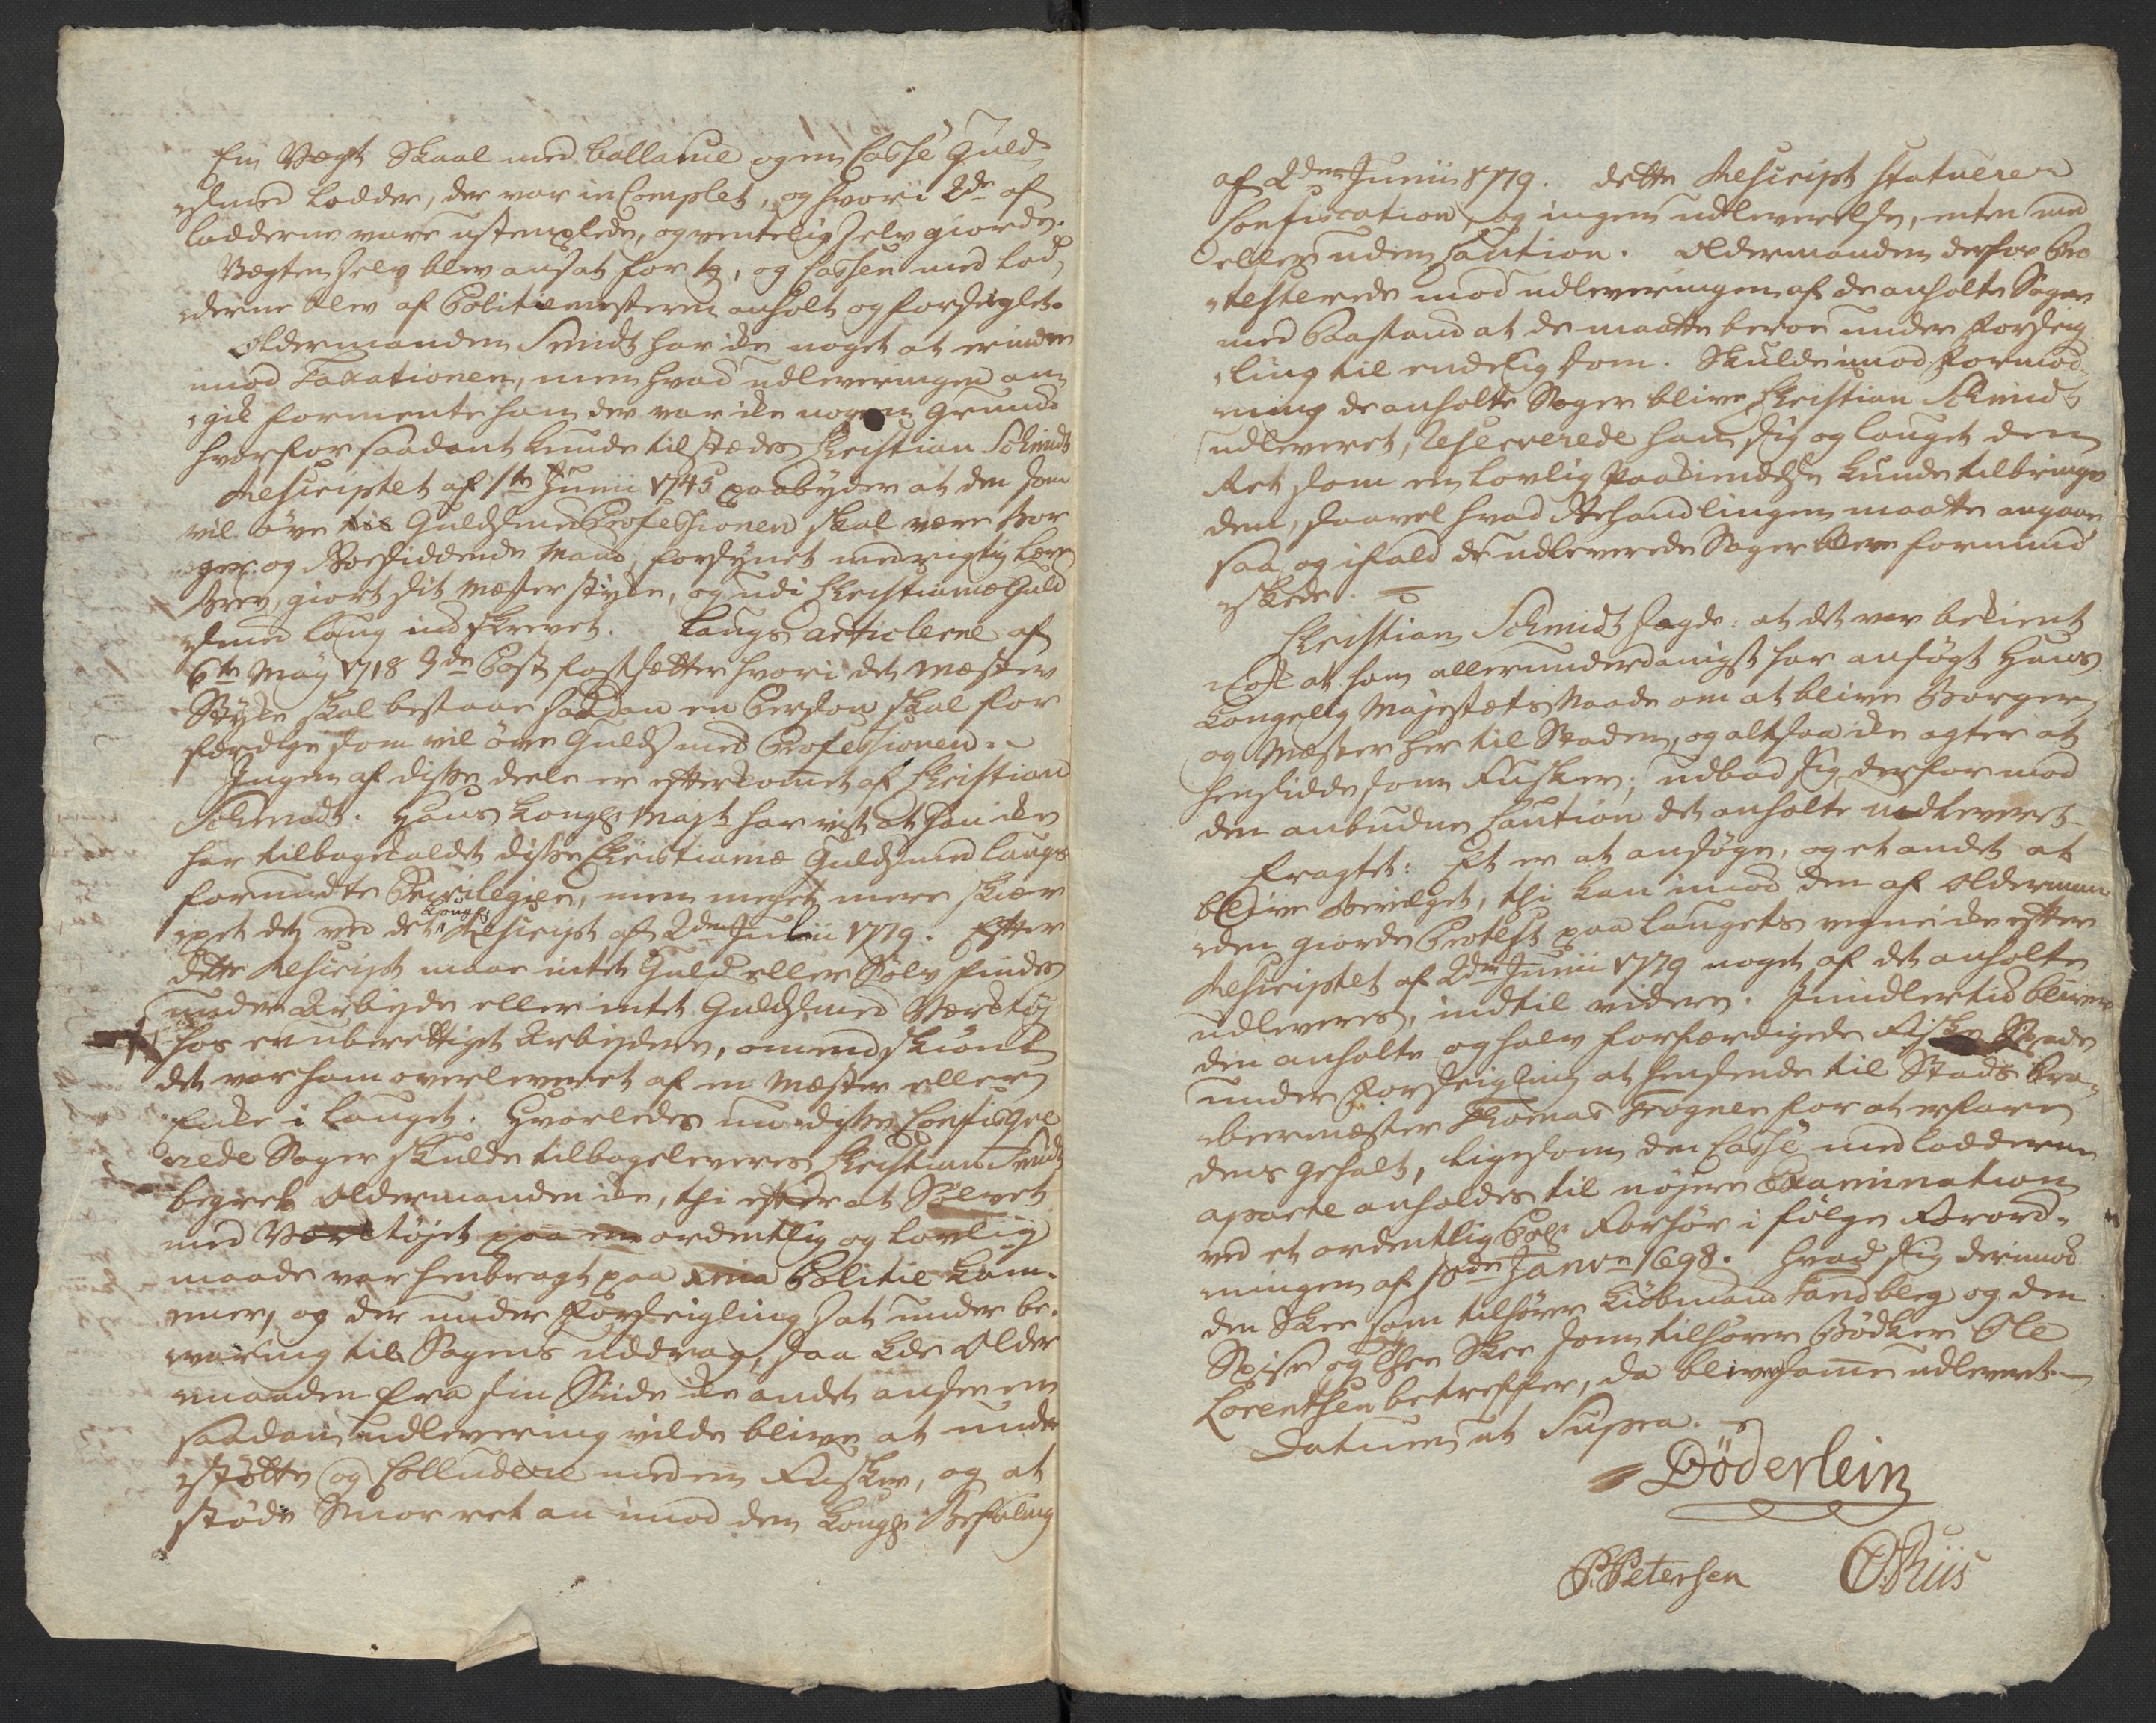 En Vegt Skaal med ballance og en Casse Guld
smed Lodder, der var in Complet, og hvori 2de af
lodderne vare ustemplede, og ventelig selv giorde.
Vegten selv blev ansat for og Cassen med Lod
derne blev af Politiemesteren anholt og forseiglet.
Oldermanden Smidt har ike noget at erindre
mod Taxationen, men hvad udleveringen an
gik formente han der var ike nogen Grund
hvorfor saadant kunde tilstædes Christian Schmidt
Rescriptet af 1te Junii 1745 paabyder at den som
vil øve Guldsmed Professionen skal være Bor
ger og Boesiddende Mand, forsynet med rigtig Lære
Brev, giort sit Mæster stykke, og udi Christianiæ Guld
smed Laug indskrevet. Laugs articlerne af
6te May 1718 3de Post fastsætter hvori det Mæster
Stykke skal bestaae saadan en Person skal for
færdige som vil øve Guldsmed Professionen.
Ingen af disse deele er efterkommet af Christian
Schmidt. Hans Kongl: Mayt har vist at han ike
har tilbagekaldet disse Christianiæ Guldsmed Laugs
forundte Privilegier, men meget mere skier
pet det ved det Kongl: Rescript af 2den Julii 1779. Efter
dette Rescript maae intet Guld eller Sølv findes
under Arbeyde eller intet Guldsmed Værktøj
hos en uberettiget Arbeydere, om end skiønt
det var ham overleveret af en Mæster eller
Enke i Lauget. Hvorledes nu disse Confisqve
rede Sager skulde tilbageleveres Christian Smidt
begreb Oldermanden ike, thi efter at Sølvet
med Værktøjet paa en ordentlig og lovlig
maade var henbragt paa Politie Kam-
mer, og der under Forseigling sat under be-
varing til Sagens uddrag, saa kde Older
manden fra sin Side ike andet ansee en
saadan udlevering vilde blive at under
støtte og Colludere med en Fusker, og at
støde Snor ret an imod den Kongl: Befaling
af 2den Junii 1779. dette Rescript statuerer
Confiscation, og ingen udleverelse, enten med
eller uden Caution. Oldermanden derfor Pro
testerede mod udleveringen af de anholte Sager
med Paastand at de maatte beroe under Forseig
ling til endelig dom. Skulde imod formod
ning de anholte Sager blive Christian Schmidt
udleveret, Reserverede han sig og lauget den
Ret som en lovlig Paakiendelse kunde tilbringe
dem, saavel hvad Behandlingen maatte angaae
saa og ifald de udleverede Sager bleve formind
skede.
Christian Schmidt sagde: at det var bekient
nok at han allerunderdanigst har ansøgt Hans
Kongelig Majestæts Naade om at blive Borger
og Mæster her til Staden, og altsaa ike agter at
hensidde som Fusker; udbad sig derfor mod
den anbudne Caution det anholte udleveret
Eragtet: Et er at ansøge, og et andet at
blive bevilget, thi kan imod den af Olderman
den giorde Protest paa Laugets vegne ike efter
Rescriptet af 2den Junii 1779 noget af det anholte
udleveres, indtil videre. Imidlertid bliver
den anholte og halv forfærdigede Fiske Spade
under Forseigling at hensende til Stads Pro-
beermæster Thomas Frogner for at erfare
dens Gehalt, ligesom den Casse med lodderne
aparte anholdes til nøjere Examination
ved et ordentlig Pol: Forhør i følge Forord-
ningen af 10de Janv: 1698. Hvad sig derimod
den Skee som tilhører Kiøbmand Sandberg og den
Spise og Thee Skee som tilhører Bødker Ole
Lorentsen betreffer, da bliver samme udleveret.
Datum ut Supra.
Döderlein
P. Petersen O. Riis